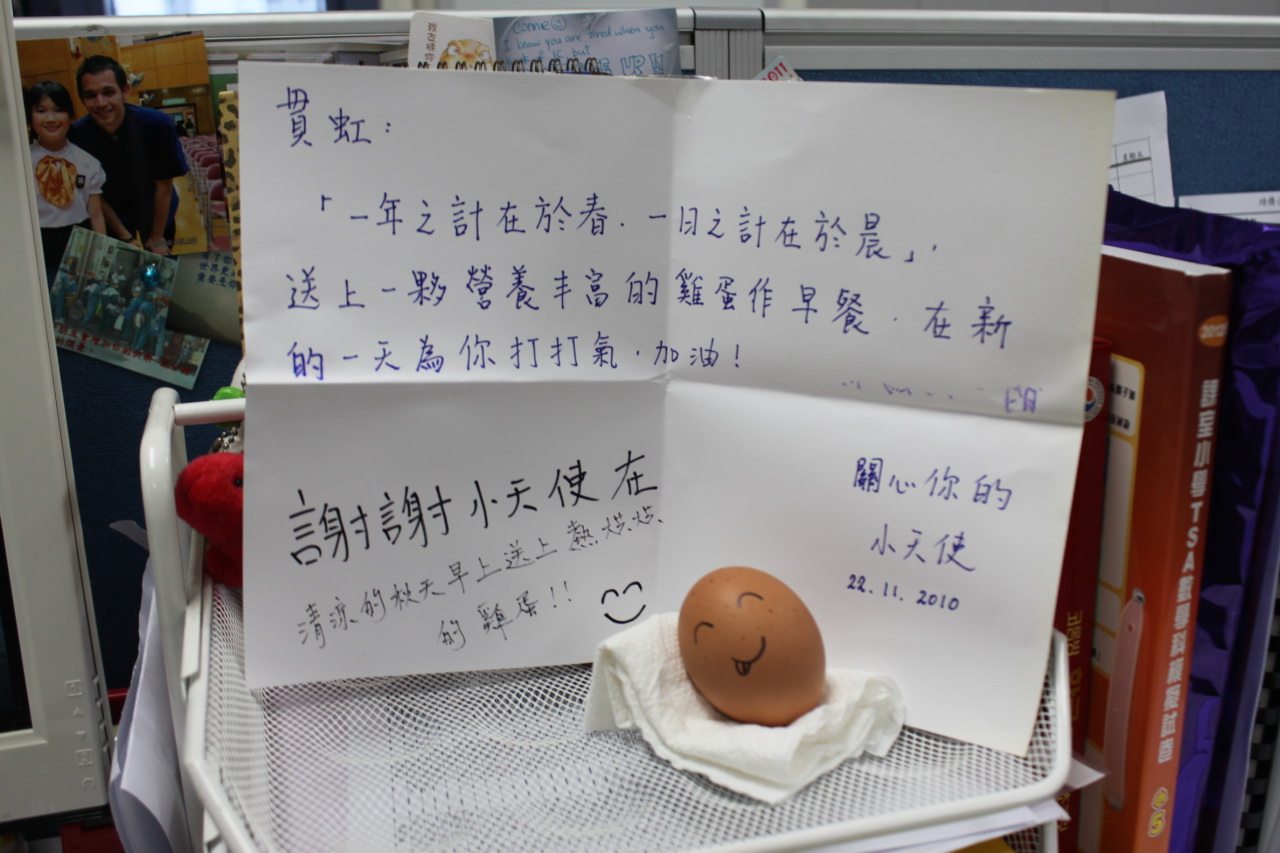 come☺
I know you are tired when you
貫虹：
「一年之計在於春．一日之計在於晨」，
送上一夥營養丰富的雞蛋作早餐．在新
的一天為你打打氣，加油！
謝謝小天使在
清涼的秋天早上送上熱烘烘
的雞蛋！！
關心你的
小天使
22.11.2010
課室小學TSA數學科模擬試卷
小5